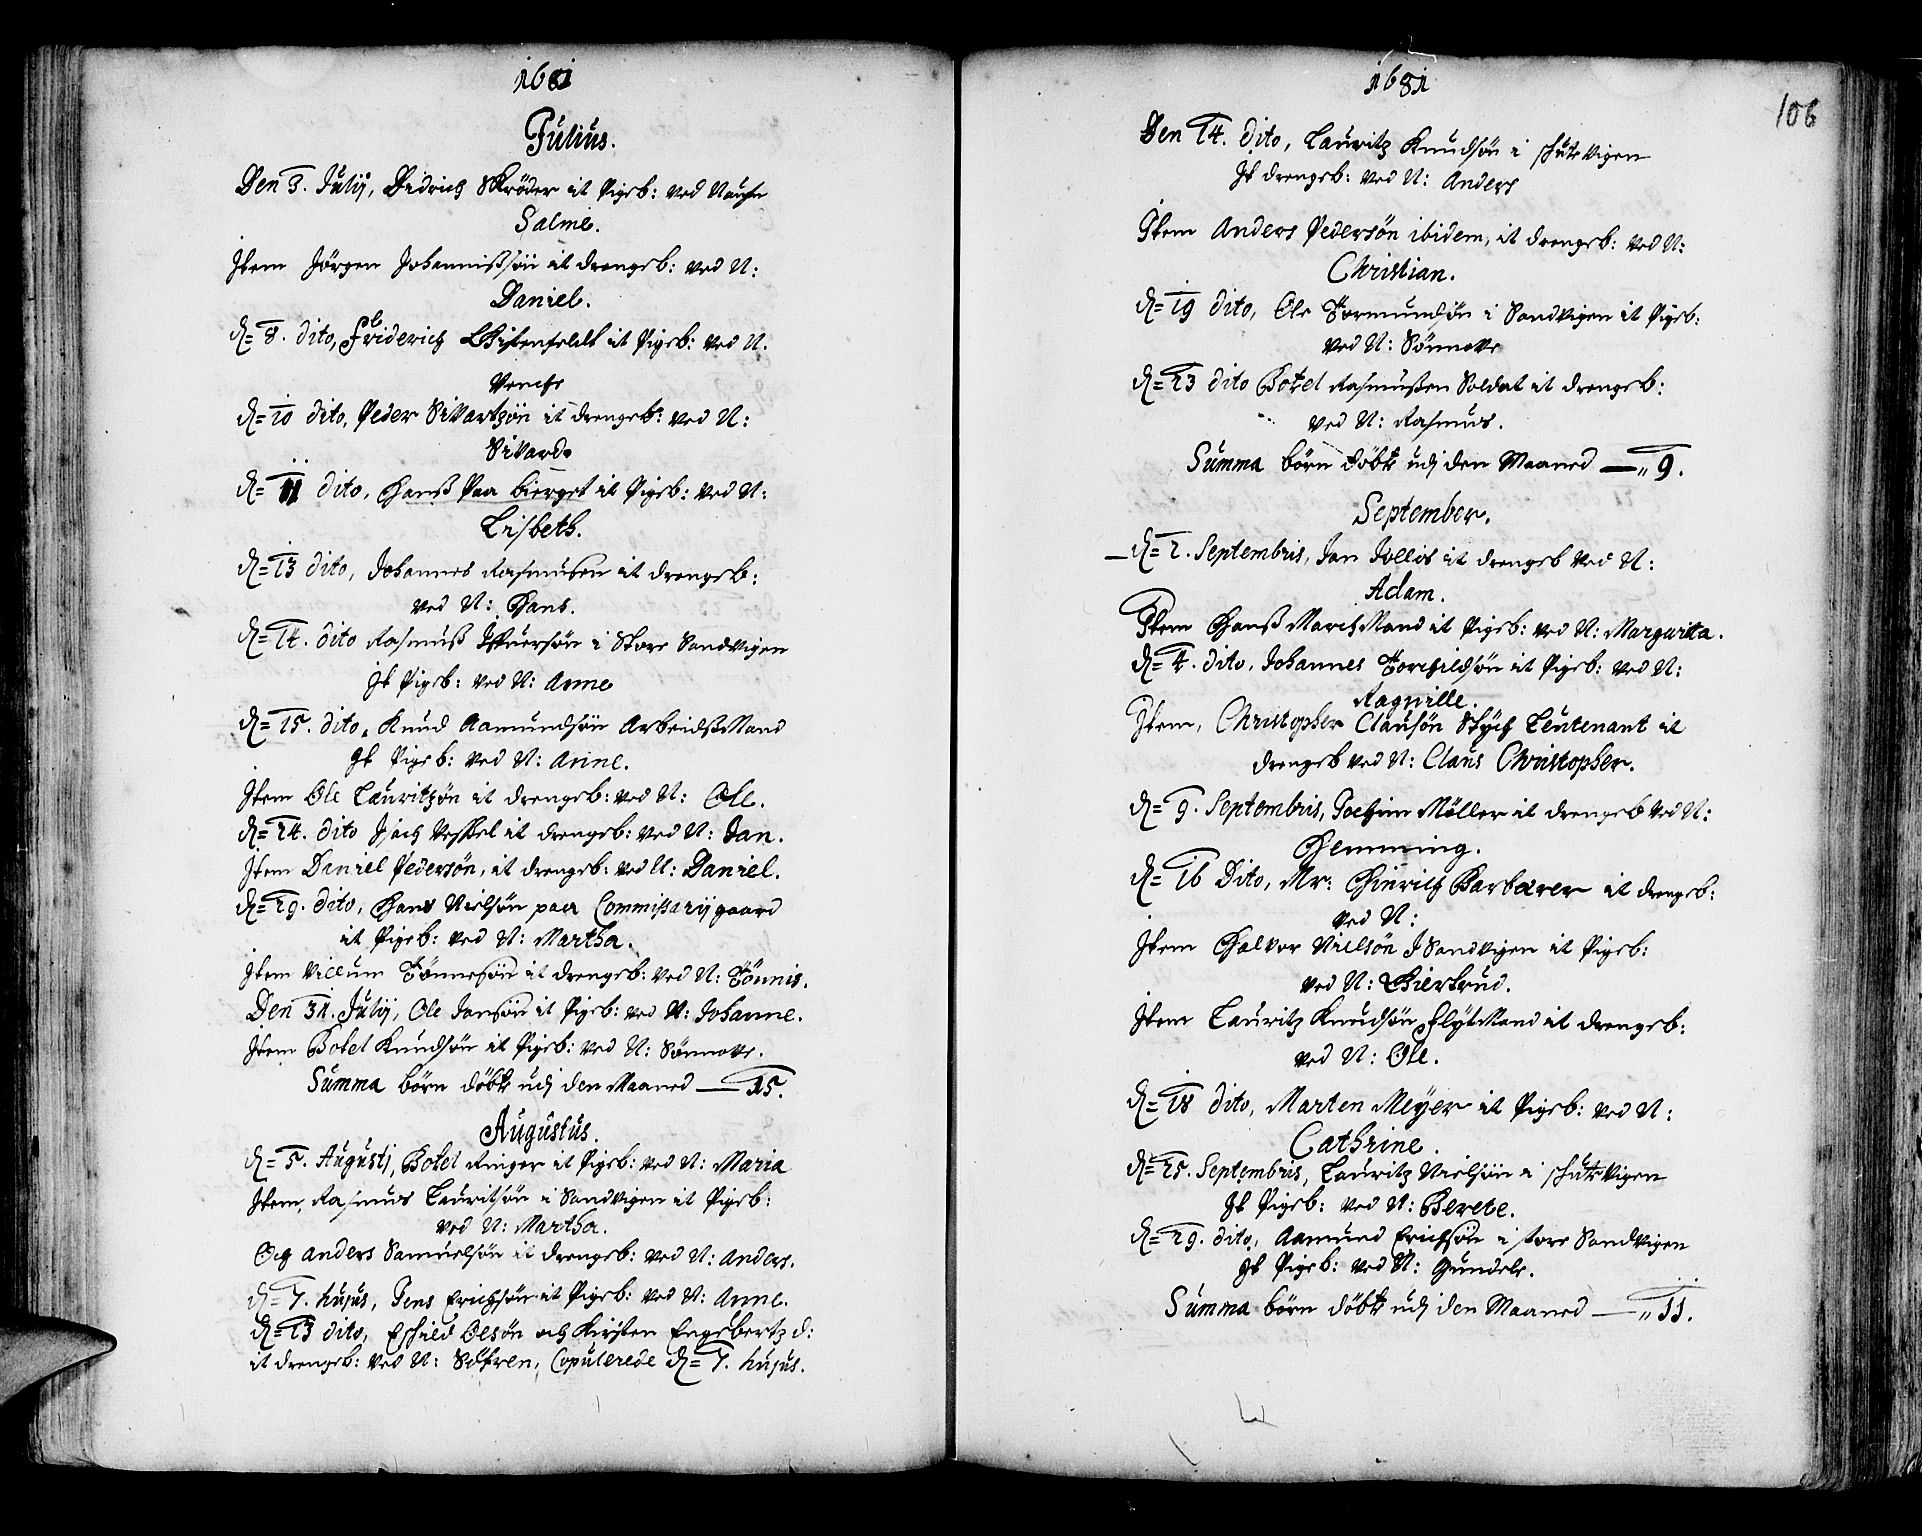 1681
Julius.
Den 3. Julij, Didrich Skröder it Pigeb: ved Naufn
Salme.
Item Jörgen Johannißsön it drengeb: ved N:
Daniel.
d= 8. dito, Friderich Gistenfeldt it Pigeb: ved N.
Venche
d= 10 dito, Peder Sivartzön it drengeb: ved N:
Sivard.
d= 11 dito, Hanß Paa bierget it Pigeb: ved N:
Lisbeth.
d= 13 dito, Johannes Rasmusen it drengeb:
ved N: Hans.
d= 14. dito Rasmuß Iffuersön i Store Sandvigen
It Pigeb: ved N: Anne
d= 15. dito. Knud Aamundsön Arbeidßmand
It Pigeb: ved N: Anne.
Item Ole Lauritzön it drengeb: ved N: Ole.
d= 24. dito Isach Veffel it drengeb: ved N: Jan.
Item Daniel Pedersön, it drengeb: ved N: Daniel.
d= 29. dito, Hans Nielsön paa Commißarijgaard
it Pigeb: ved N: Martha.
Item Villum Tönnesön it drengeb: ved N: Tönnis.
Den 31. Julij, Ole Jansön it Pigeb: ved N: Johanne.
Item Botel Knudsön it Pigeb: ved N: Sönnove.
Summa börn döbte udj den Maaned — 15.
Augustus.
d= 5. Augustj, Botel Ringer it Pigeb: ved N: Maria
Item Rasmus Lauritsön i Sandvigen it Pigeb:
ved N: Martha.
Og anders Samuelsön it drengeb: ved N: Anders.
d= 7. hujus, Jens Erichsön it Pigeb: ved N: Anne.
d= 13 dito, Eschild Olsön och Kirsten Engebertz d:
it drengeb: ved N: Söfren, Copulerede d= 7. hujus.
1681
106
Den 14. dito, Lauritz Knudsön i schutevigen
It drengeb: ved N: Anders
Item Anders Pedersön ibidem, it drengeb: ved N:
Christian.
d= 19 dito, Ole Tormundsön i Sandvigen it Pigeb:
ved N: Sönnove
d= 23 dito Botel Rasmußen Soldat it drengeb:
ved N: Rasmus.
Summa börn döbte udj den Maaned — „ 9.
September.
d= 2. Septembris, Jan Jellis it drengeb ved N:
Adam.
Item Hanß March Mand it Pigeb: ved N: Margritta.
d= 4. dito, Johannes Torchildsön it Pigeb: ved N:
Ragnille.
Item, Christopher Clausön Stÿch Leutenant it
drengeb ved N: Claus Christopher.
d= 9. Septembris, Jochim Möller it drengeb ved N:
Hemming.
d= 16 Dito, Mr: Hinrich Barberer it drengeb:
ved N:
Item Halvor Nielsön I Sandvigen it Pigeb:
ved N: Giertrud.
Item Lauritz Knudsön Flÿtmand it drengeb:
ved N: Ole.
d= 18 dito, Marten Meÿer it Pigeb: ved N:
Cathrine.
d= 25. Septembris, Lauritz Nielsön i schutevigen
It Pigeb: ved N: Berete.
d= 29. dito, Aamund Erichsön i store Sandvigen
It Pigeb: ved N: Gundele.
Summa börn döbte udj den Maaned — „ 11.